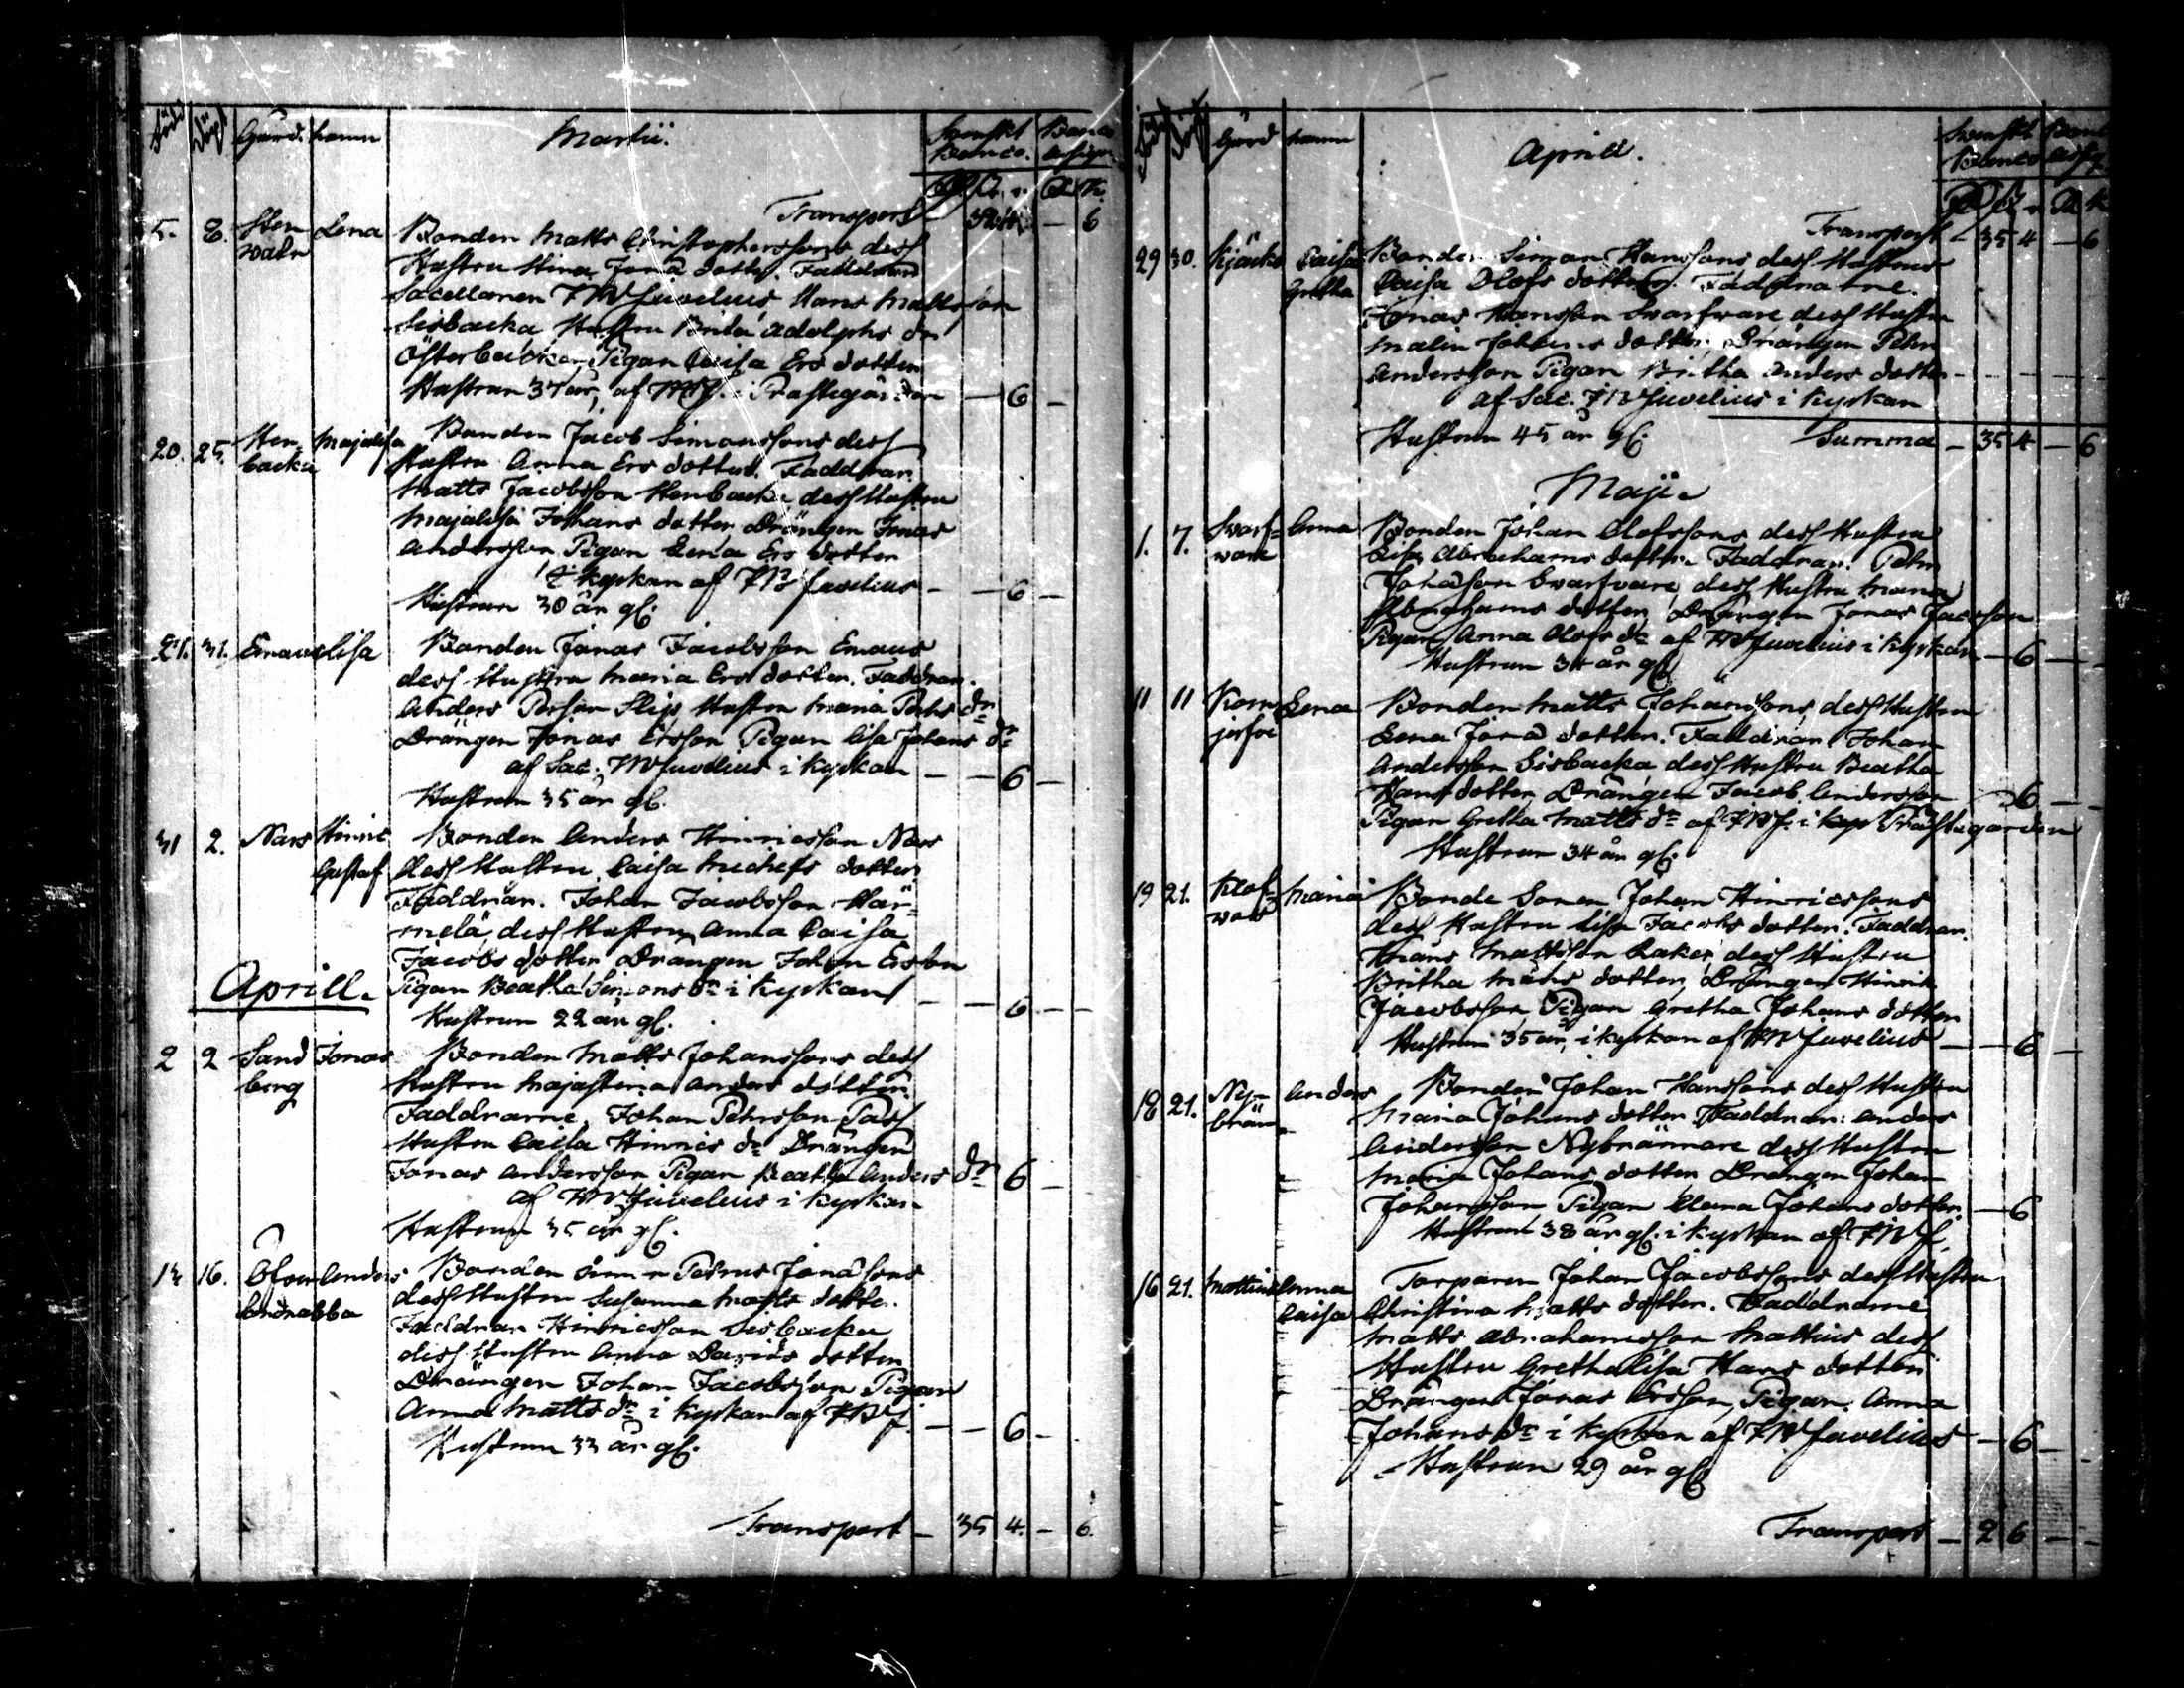 Född Döpt Gård. namn Martii. Svenskt Banco. Banco assign.
Transport — — 6
5. 8. Sten Lena Bonden Matts Christophersons dess
Hustru Stina Jona dotter. Faddrar
Sacellanen FW Juvelius, Hans Mattsson
Sisbacka Hustru Brita Adolphs dr
Österbacka, Pigan Caisa Ers dotter
Hustrun 37 år, af FWJ. i Prästegården — 6 —
20. 25. Sten Majalisa Bonden Jacob Simonssons dess
backa Hustru Anna Ers dotter. Faddrar
Matts Jacobsson Stenbacka dess Hustru
Majalisa Johans dotter Drängen Jonas
Andersson Pigan Lena Ers dotter
i kyrkan af FW Juvelius — — 6 —
Hustrun 30 år gl.
21. 31. Emaus Lisa Bonden Jonas Jacobsson Emaus
dess Hustru Maria Ers dotter. Faddrar.
Anders Persson Slip Hustru Maria Pehrs dr
Drängen Jonas Ersson Pigan Lisa Johans dr
af Sac. FW Juvelius i kyrkan — — 6 —
Hustrun 35 år gl.
31 2. Nars Hinric Bonden Anders Hinricsson Nars
Gustaf dess Hustru Caisa Michels dotter
Faddrar. Johan Jacobsson Här-
melä dess Hustru Anna Caisa
Jacobs dotter Drängen Johan Ersson
Aprill. Pigan Beatha Simons dr i kyrkan — — 6 — —
Hustrun 22 år gl.
2 2 Sand Jonas Bonden Matts Johanssons dess
berg Hustru Majastina Anders dotter
Faddrarne, Johan Petersson Pass
Hustru Caisa Hinrics dr Drängen
Jonas Andersson Pigan Beatha Anders dr 6 —
af FW Juvelius i kyrkan
Hustrun 35 år gl.
14 16. Anders Bonden Petrus Jonasons
dess Hustru Susanna Matts dotter.
Faddrar Hinricsson Sisbacka
dess Hustru Anna Davids dotter
Drängen Johan Jacobsson Pigan
Anna Matts dr i kyrkan af FWJ. — — 6 —
Hustrun 33 år gl.
Transport — 35 4. — 6.
Gård namn Aprill. Svenskt Banco
Transport — 35 4 — 6
29 30. Kjäcko Caisa Bonden Simon Hanssons dess Hustrus
Gretha Caisa Olofs dotter. Faddrarne.
Jonas Hansson Svartvare dess Hustru
Malin Johans dotter, Drängen Peter
Andersson Pigan Britha Anders dotter — — — — —
af Sac. FW Juvelius i kyrkan
Hustrun 45 år gl. Summa — 35 4 — 6
Maji
1. 7. Svart- Anna Bonden Johan Olofssons dess Hustru
vare Lisa Abrahams dotter. Faddrar. Peter
Johansson Svartvare dess Hustru Maria
Abrahams dotter, Drängen Jonas Jacobsson
Pigan Anna Olofs dr af FW Juvelius i kyrkan — 6 — —
Hustrun 34 år gl.
11 11 Korp Lena Bonden Matts Johanssons dess Hustru
Lena Jona dotter. Faddrar Johan
Andersson Sisbacka dess Hustru Beatha
Hans dotter Drängen Jacob Andersson 6 — —
Pigan Gretha Matts dr af FWJ. i Prästegården
Hustrun 34 år gl.
19 21. Klof- Maria Bonde Sonen Johan Hinricssons
dess Hustru Lisa Jacobs dotter. Faddrar.
Hans Mattsson dess Hustru
Britha Mats dotter, Drängen Hinric
Jacobsson Pigan Gretha Johans dotter
Hustrun 35 år, i kyrkan af FW Juvelius — — 6 —
18 21. Ny- Anders Bonden Johan Hanssons dess Hustru
brän Maria Johans dotter Faddrar: Anders
Andersson Nybrännare dess Hustru
Maria Johans dotter Drängen Johan
Johansson Pigan Anna Johans dotter. — 6
Hustrun 38 år gl. i kyrkan af FWJ.
16 21. Mattius Anna Torparen Johan Jacobssons dess Hustru
Caisa Christina Matts dotter. Faddrarne
Matts Abrahamsson Mattius dess
Hustru Grethalisa Hans dotter
Drängen Jonas Ersson, Pigan Anna
Johans dr i kyrkan af FW Juvelius — 6 —
Hustrun 29 år gl.
Transport — 2 6 — —